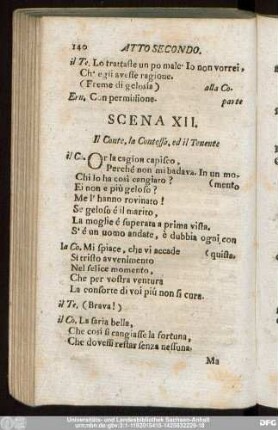 140 ATTO SECONDO.
il Te. Lo trattaste un po male? Io non vorrei,
Ch' egli avesse ragione.
(Freme di gelosia) alla Co.
Ern. Con permissione. parte
SCENA XII.
Il Conte, la Contessa, ed il Tenente
il C. Or la cagion capisco,
Perché non mi badava. In un mo-
Chi lo ha così cangiaro? (mento
Ei non è più geloso?
Me l' hanno rovinato!
Se geloso é il marito,
La moglie é superata a prima vista.
S' é un uomo andate, è dubbia ogni con
la Co. Mi spiace, che vi accade (quista.
Si tristo avvenimento
Nel felice momento,
Che per vostra ventura
La consorte di voi più non si cura.
il Te. (Brava!)
il Co. La saria bella,
Che così si cangiasse la fortuna,
Che dovessi restar senza nessuna.
Ma
Universitäts- und Landesbibliothek Sachsen-Anhalt
DFG